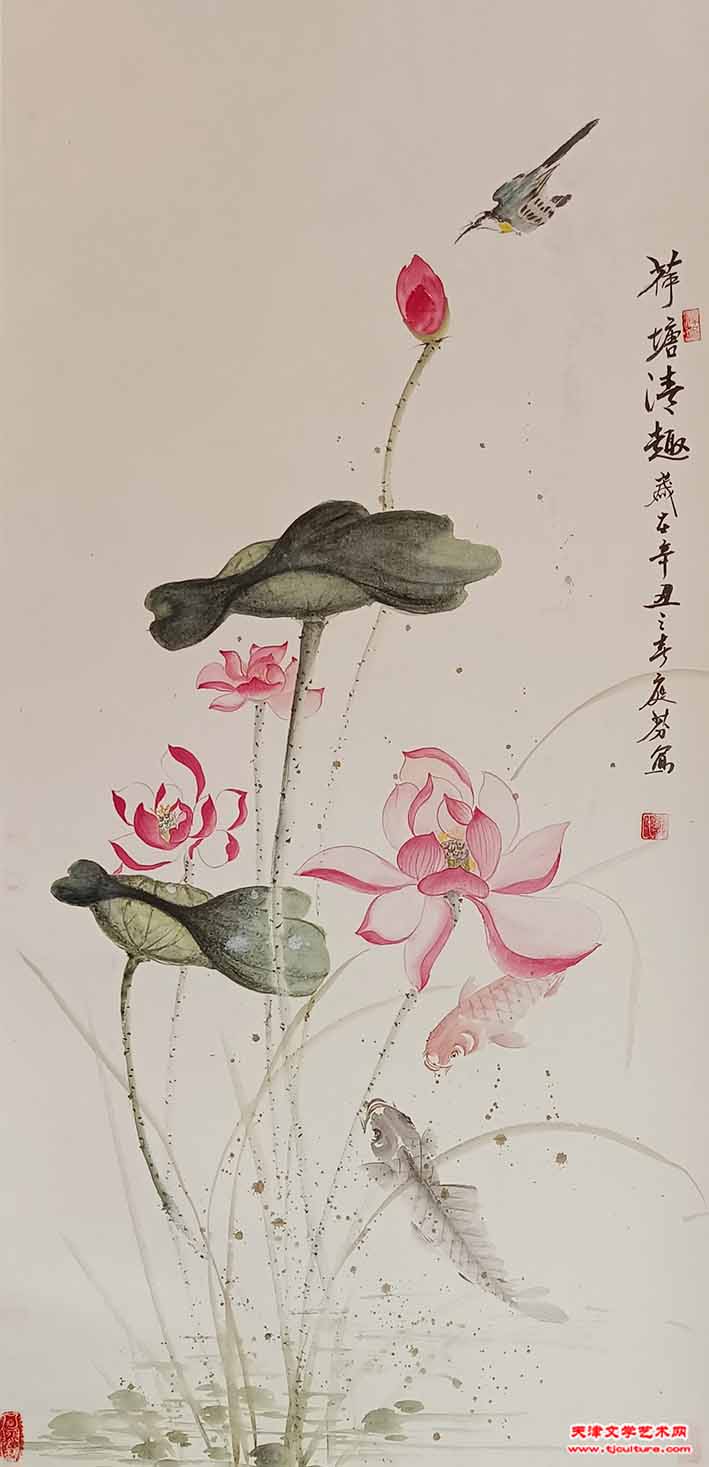 荷塘清趣 歲在辛丑之春庭芬寫
天津文学艺术网
www.tjculture.com